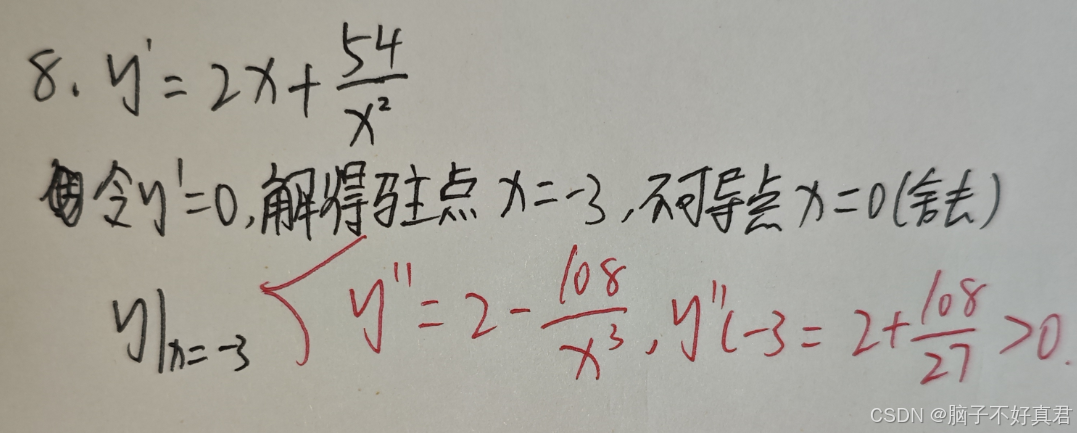 8. y'=2x+54/x²
令y'=0,解得驻点 x=-3,不可导点 x=0(舍去)
y|x=-3 y''=2-108/x³,y''(-3=2+108/27>0.
CSDN @脑子不好真君